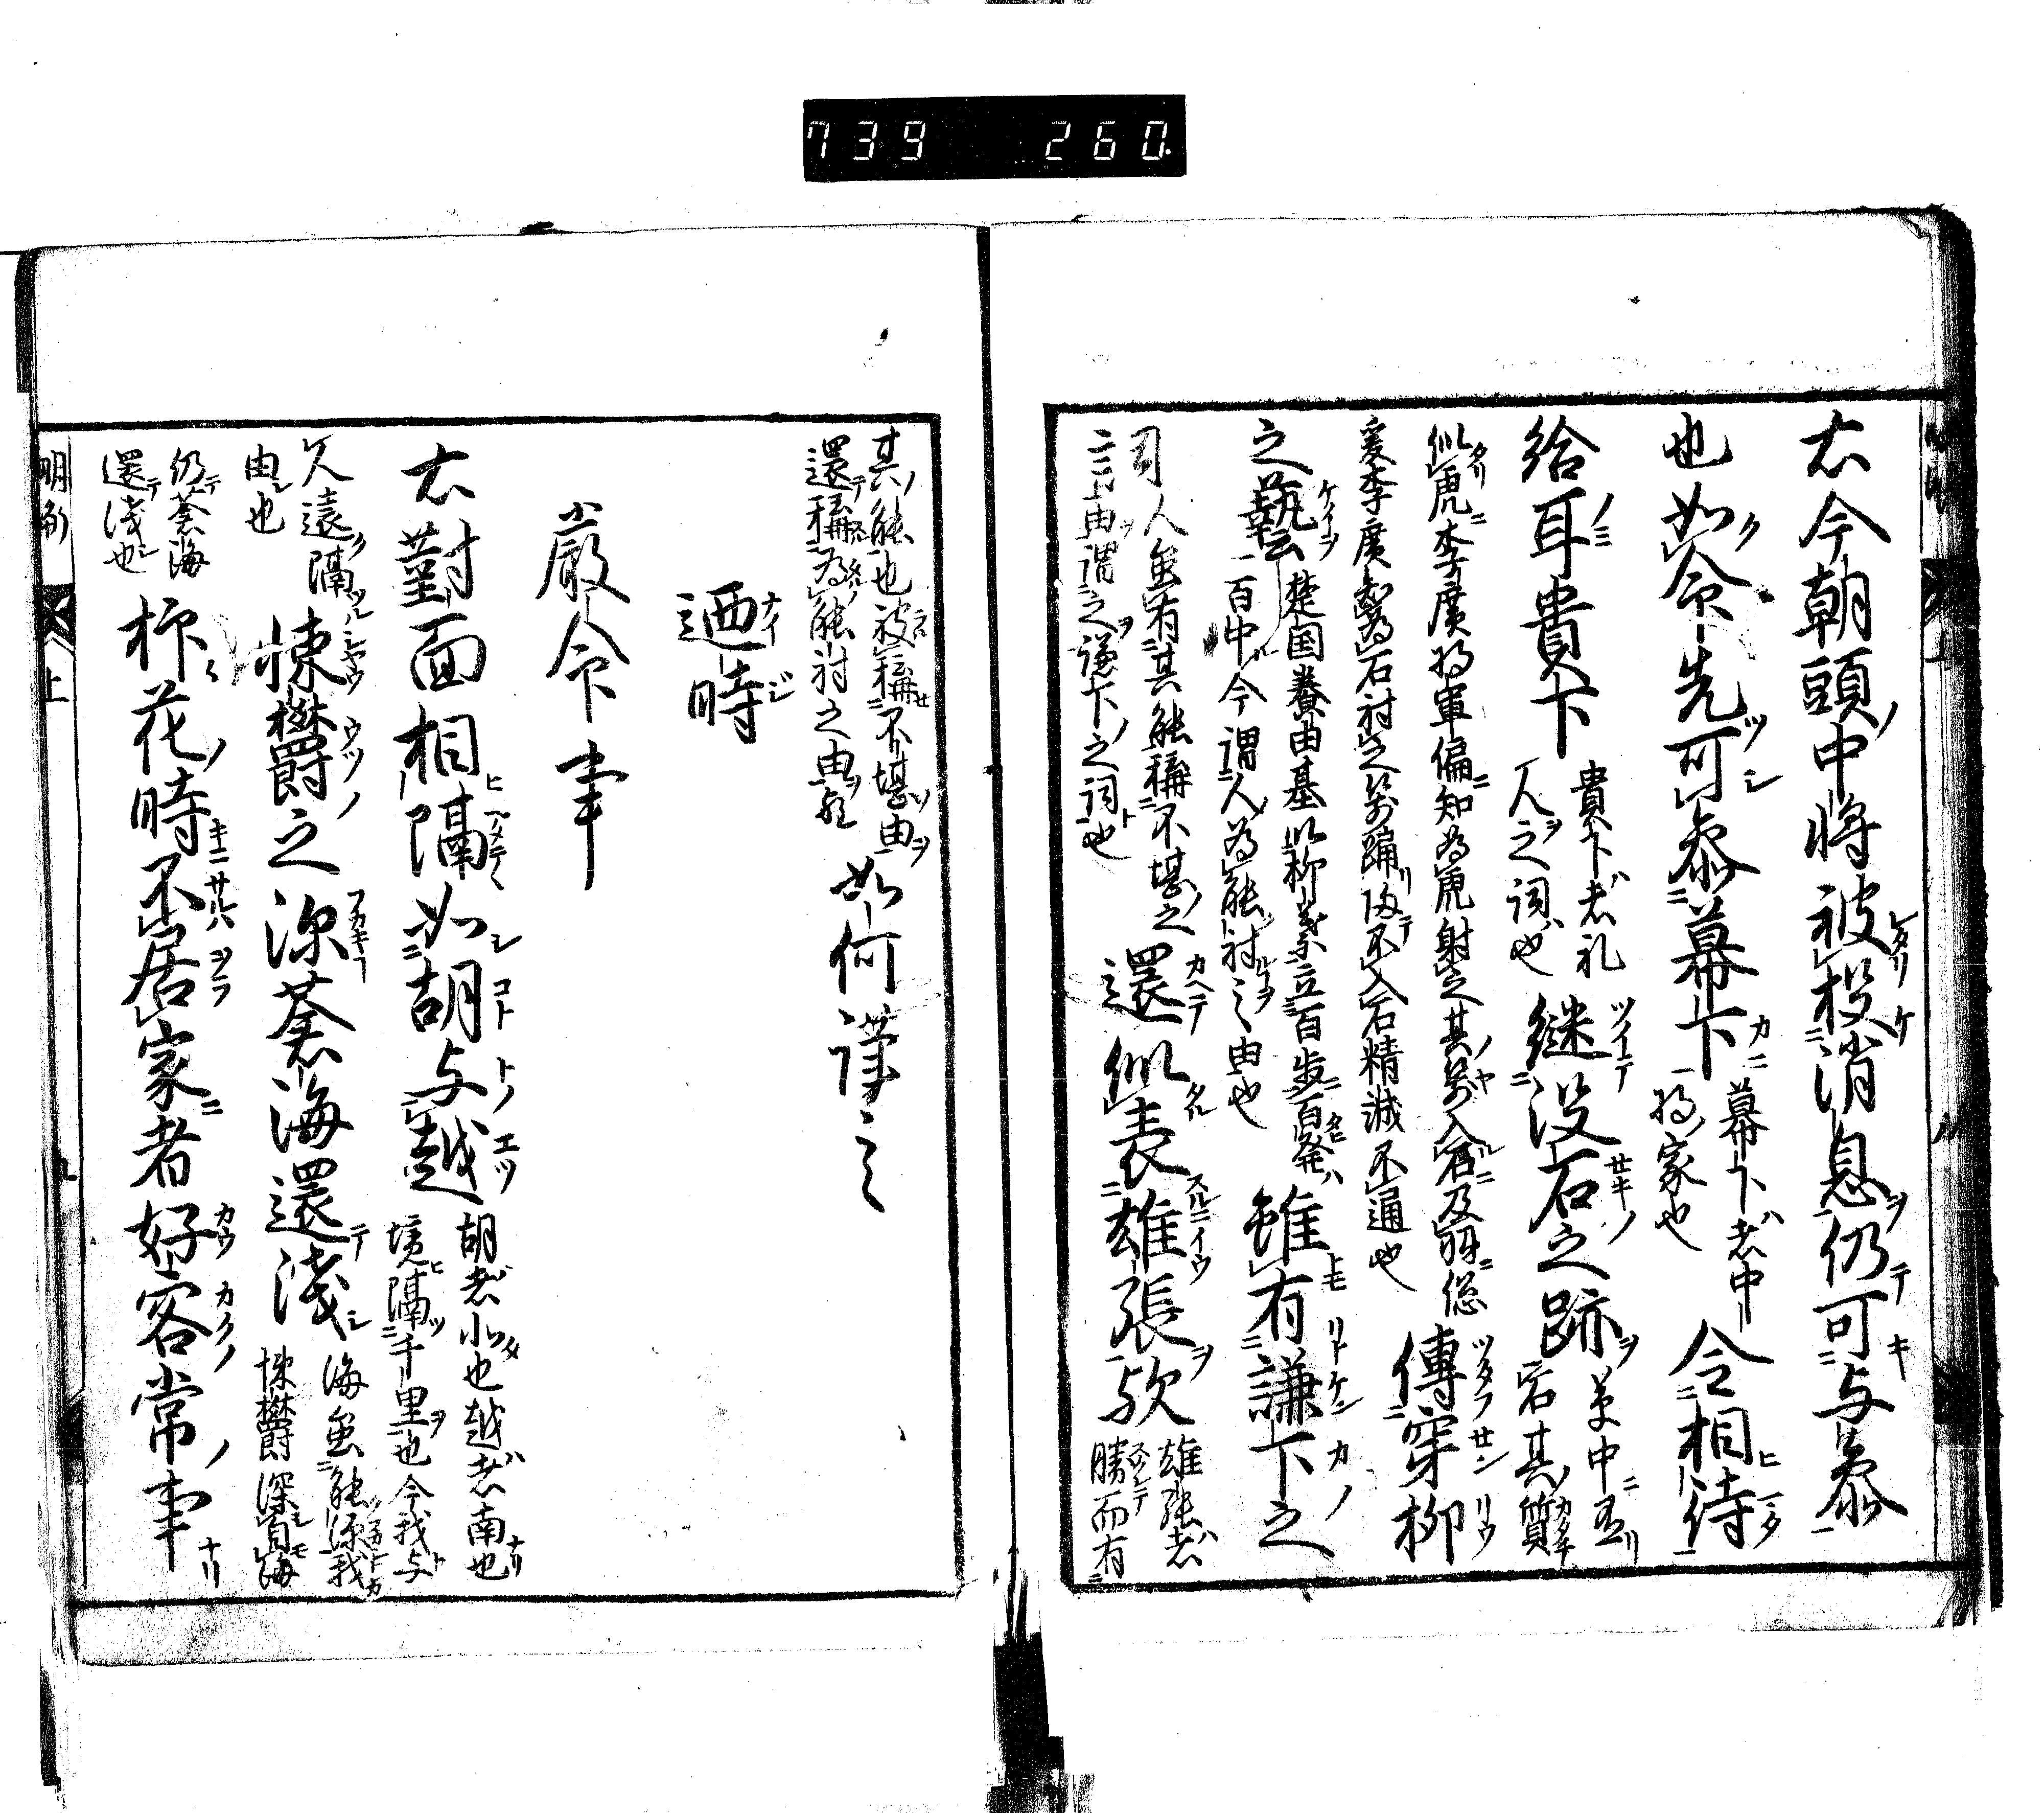 739 260
右今朝頭中将被投消息仍可与参
也如令先可参幕下
幕下者中
将家也
令相待
給耳貴下
貴下者礼
人之詞也
継没石之跡
草中
石其質
似虎李廣将軍偏知為虎射之其箭入石及羽後
更李廣知為石射之箭踊而不入石精誠不通也
傳穿柳
之藝
楚国養由基以柳葉立百歩百発
百中今謂人為能射之由也
雖有謙下之
詞
人虽有其能称不堪之
言上由謂之謙下之詞也
還似表雄張歟
雄張者
勝而有
其能也被称不堪由
還称為能射之由歟
如何謹言
迺時
嚴命事
右對面相隔如胡与越
胡者北也越者南也
境隔千里也今我与
人遠隔
由也
悚欝之深蒼海還浅
海虽能深我
悚欝深自海
仍蒼海
還浅也
抑花時不居家者好客常事
明衡 上